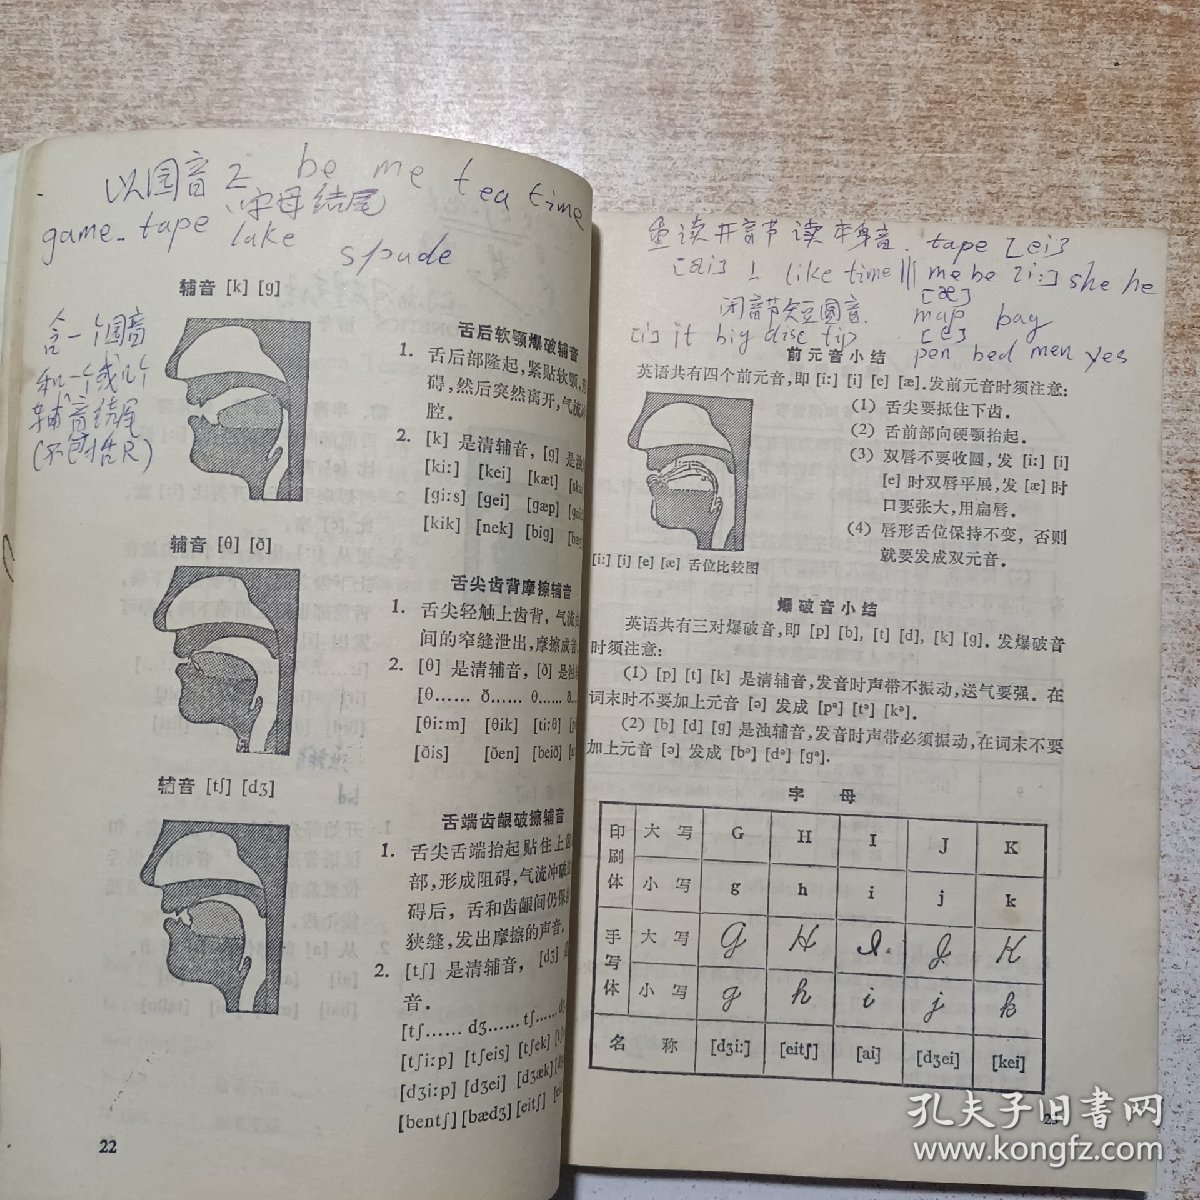 以园音 2 be me tea time
字母结尾
game. tape lake
spude
辅音 [k] [g]
含一个园音
和一个或几个
辅音结尾
舌后软颚爆破辅音
1. 舌后部隆起，紧贴软颚，
碍，然后突然离开，气流
腔．
2. [k] 是清辅音，[g] 是浊
[kiː] [kei] [kæt]
[giːs] [gei] [gæp]
[kik] [nek] [big]
辅音 [θ] [ð]
舌尖齿背摩擦辅音
1. 舌尖轻触上齿背，气流
间的窄缝泄出，摩擦成音
2. [θ] 是清辅音，[ð] 是浊
[θ…… ð…… θ…… ð
[θiːm] [θik] [tiːθ]
[ðis] [ðen] [beið]
辅音 [tʃ] [dʒ]
舌端齿龈破擦辅音
1. 舌尖舌端抬起贴住上
部，形成阻碍，气流冲破
碍后，舌和齿龈间仍保
狭缝，发出摩擦的声音．
2. [tʃ] 是清辅音，[dʒ]
音．
[tʃ…… dʒ…… tʃ……
[tʃiːp] [tʃeis] [tʃek]
[dʒiːp] [dʒei] [dʒæk]
[bentʃ] [bædʒ] [eitʃ]
22
重读开音节读本身音. tape [ei]
[ai] like time me be [i:] she he
[æ]
闭音节短园音. map bag
[i] it big disc tip [e]
pen bed men yes
前元音小结
英语共有四个前元音，即 [iː] [i] [e] [æ]．发前元音时须注意：
(1) 舌尖要抵住下齿．
(2) 舌前部向硬颚抬起．
(3) 双唇不要收圆，发 [iː] [i]
[e] 时双唇平展，发 [æ] 时
口要张大，用扁唇．
(4) 唇形舌位保持不变，否则
就要发成双元音．
[iː] [i] [e] [æ] 舌位比较图
爆破音小结
英语共有三对爆破音，即 [p] [b], [t] [d], [k] [g]．发爆破音
时须注意：
(1) [p] [t] [k] 是清辅音，发音时声带不振动，送气要强．在
词末时不要加上元音 [ə] 发成 [pᵊ] [tᵊ] [kᵊ]．
(2) [b] [d] [g] 是浊辅音，发音时声带必须振动，在词末不要
加上元音 [ə] 发成 [bᵊ] [dᵊ] [gᵊ]．
字母
印刷体 大写 G H I J K
小写 g h i j k
手写体 大写 G H I J K
小写 g h i j k
名称 [dʒiː] [eitʃ] [ai] [dʒei] [kei]
孔夫子旧书网
www.kongfz.com